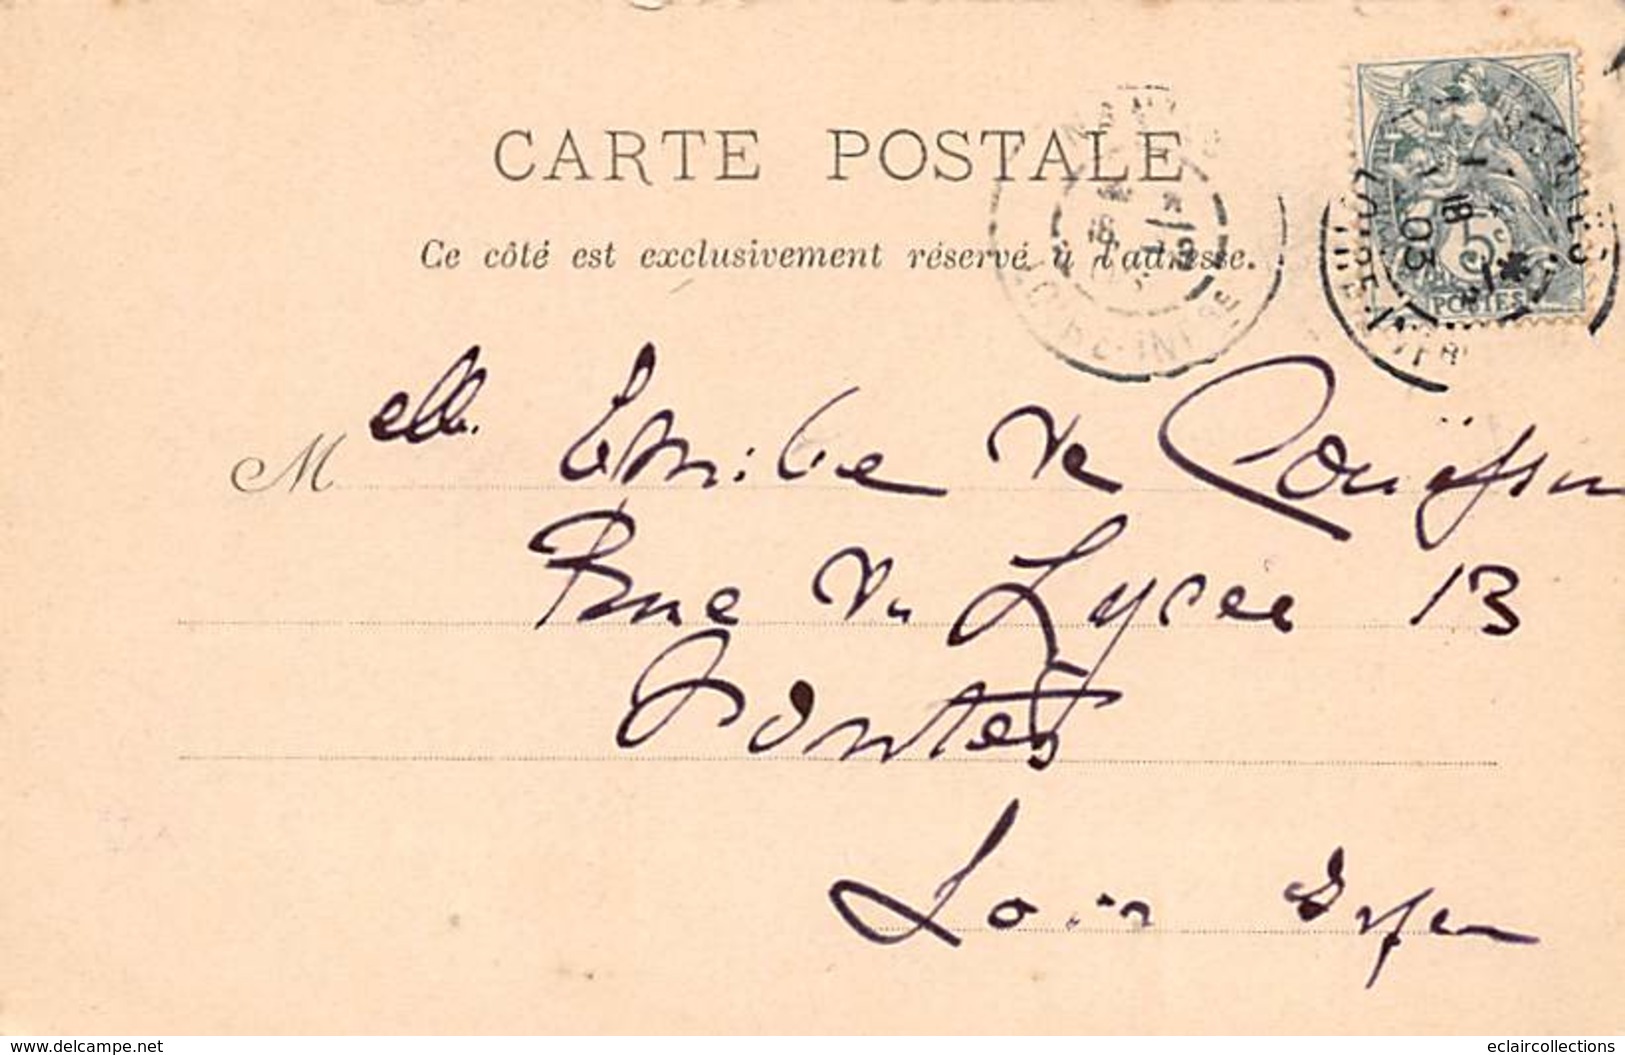 CARTE POSTALE
Ce côté est exclusivement réservé à l'adresse.
5c
POSTES
18
03
LOIRE-INFRE
M elle. Emilie de
Rue du Lycée 13
Nantes
Loire Infen
www.delcampe.net
eclaircollections